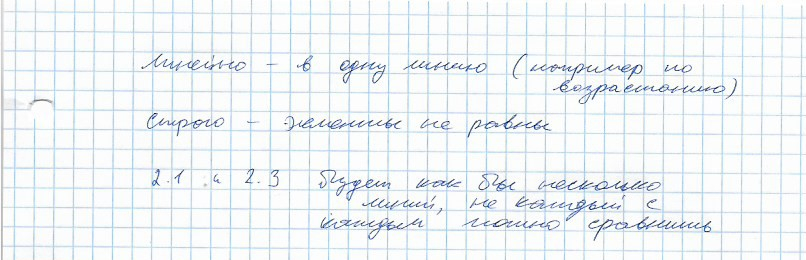 Линейно - в одну линию (например по
возрастанию)
Строго - элементы не равны
2.1 и 2.3 будет как бы несколько
линий, не каждый с
каждым можно сравнить